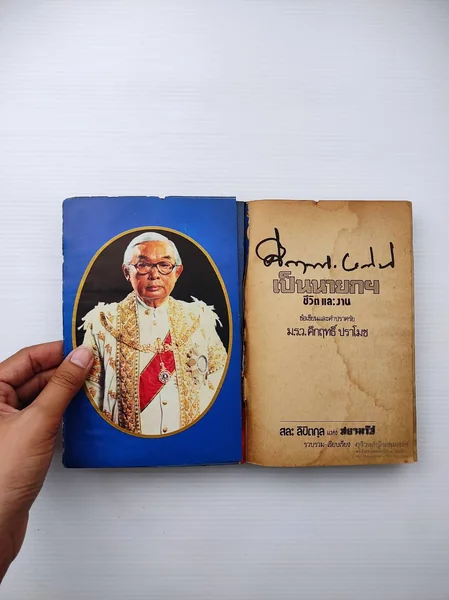 เป็นนายกฯ
ชีวิต และ งาน
ข้อเขียนและคำปราศรัย
ม.ร.ว. คึกฤทธิ์ ปราโมช
สละ ลิขิตกุล และ สยามรัฐ
รวบรวม-เรียบเรียง